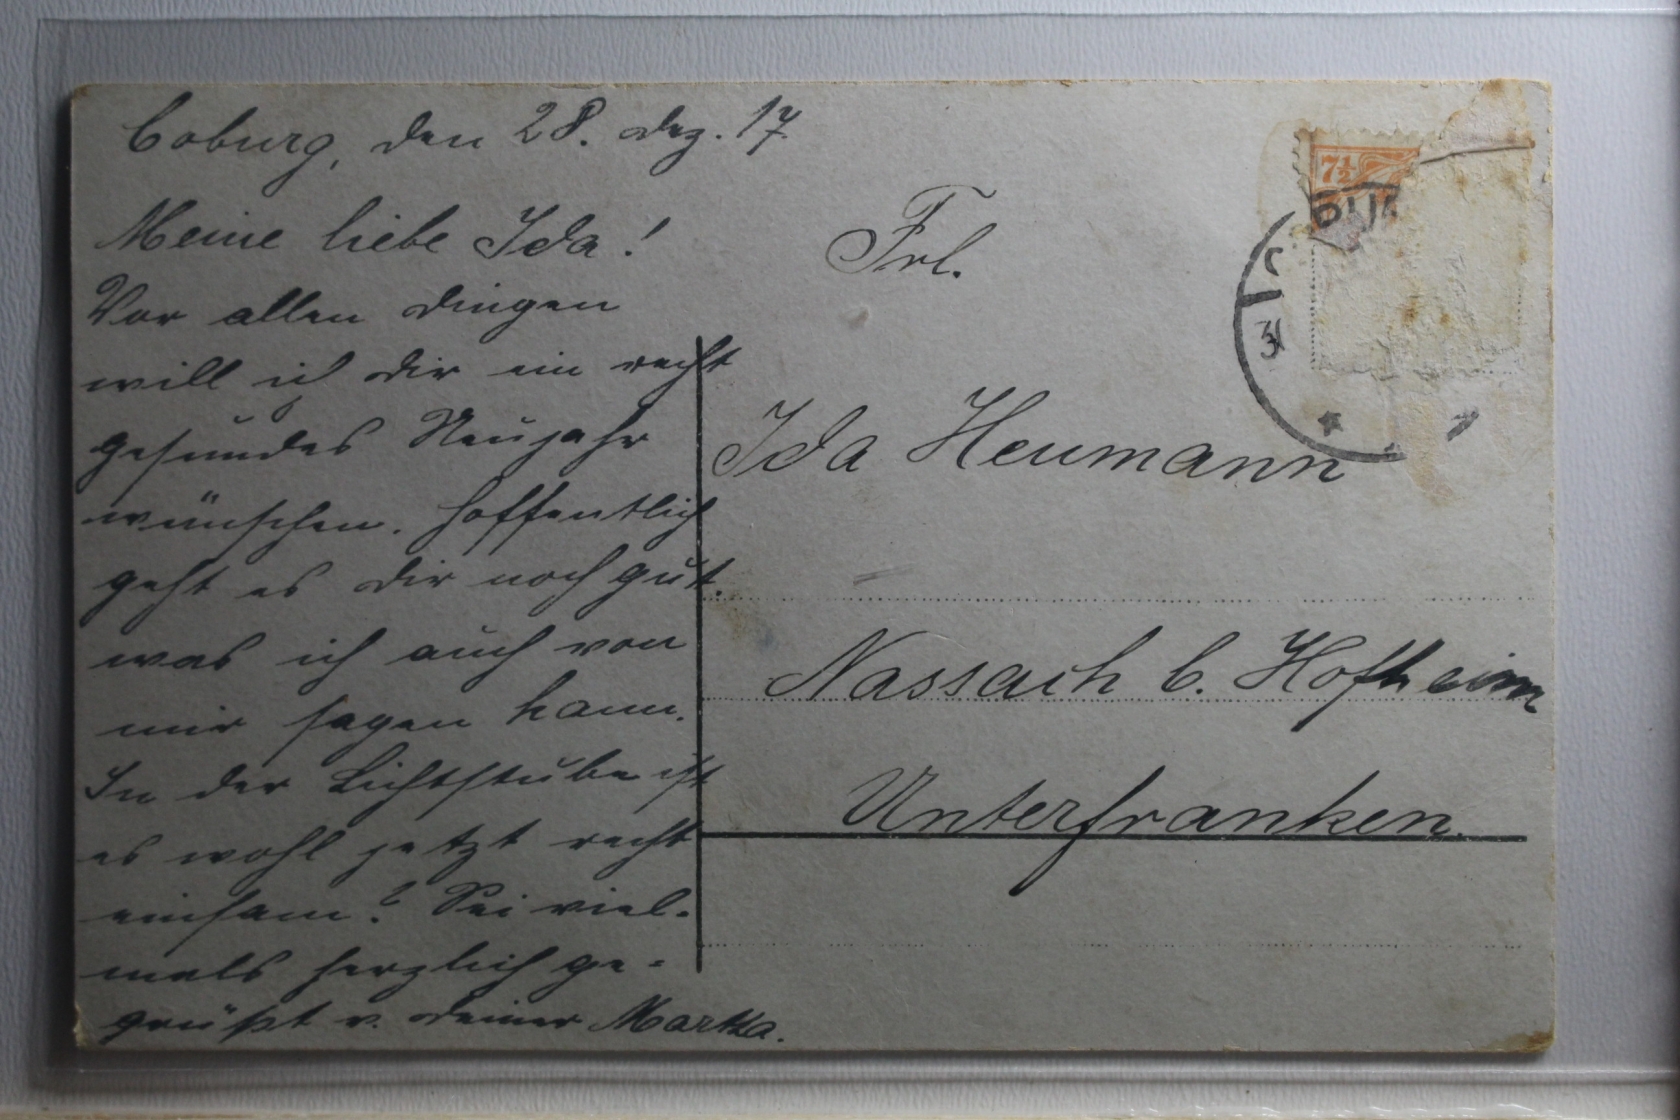 Coburg, den 28. Dez. 17
Meine liebe Ida!
Vor allen Dingen
will ich dir ein recht
gesundes Neujahr
wünschen. Hoffentlich
geht es dir noch gut.
was ich auch von
mir sagen kann.
In der Lichtstube ist
es wohl jetzt recht
einsam? Sei viel-
mals herzlich ge-
grüßt v. deiner Martha.
7½
Frl.
Ida Heumann
Nassach b. Hofheim
Unterfranken.